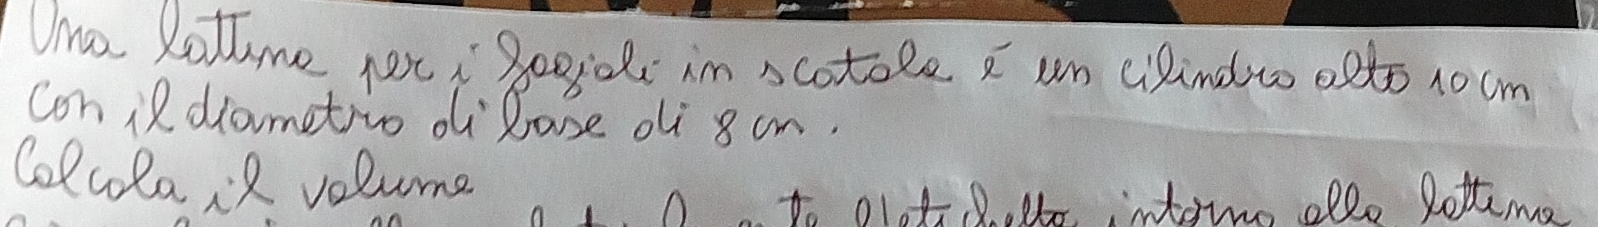 Una lattina per i fagioli in scatola è un cilindro alto 10 cm
con il diametro di base di 8 cm.
Calcola il volume
intorno alla lattina